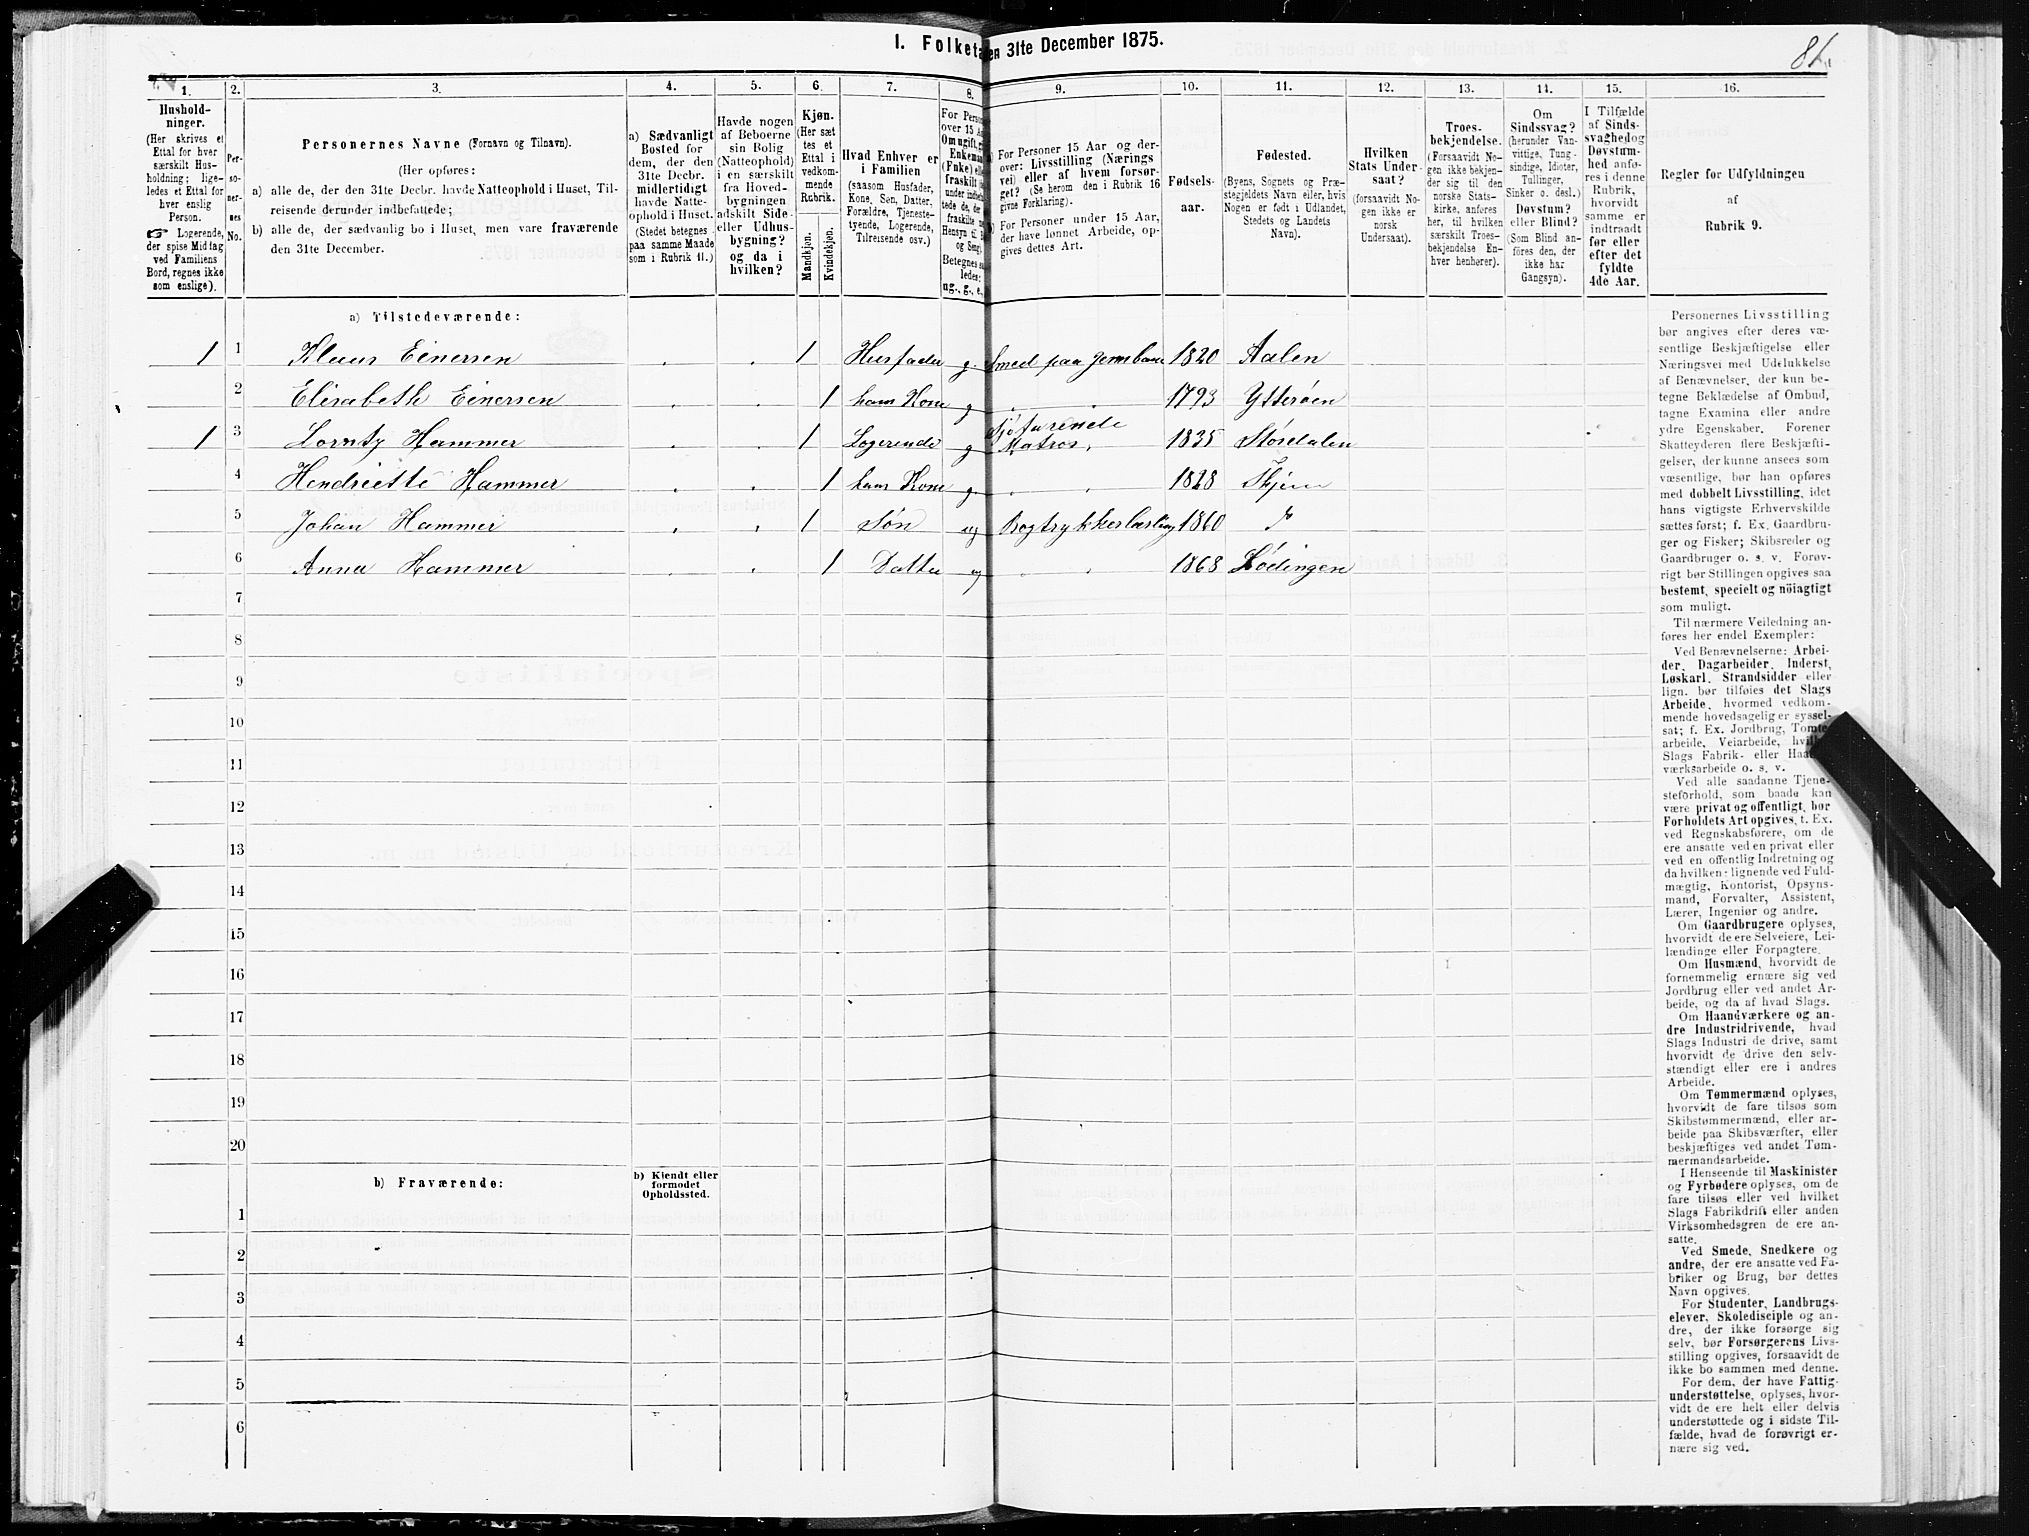 I. Folketa en 31te December 1875.
81.
1.
Hushold-
ninger.
(Her skrives et
Ettal for hver
særskilt Hus-
holdning; lige-
ledes et Ettal for
hver enslig
Person.
☞ Logerende,
der spise Middag
ved Familiens
Bord, regnes ikke
som enslige).
2.
Per-
so-
ner-
nes
No.
3.
Personernes Navne (Fornavn og Tilnavn).
(Her opføres:
a) alle de, der den 31te Decbr. havde Natteophold i Huset, Til-
reisende derunder indbefattede;
b) alle de, der sædvanlig bo i Huset, men vare fraværende
den 31te December.
4.
a) Sædvanligt
Bosted for
dem, der den
31te Decbr.
midlertidigt
havde Natte-
ophold i Huset.
(Stedet betegnes
paa samme Maade
som i Rubrik 11.)
5.
Havde nogen
af Beboerne
sin Bolig
(Natteophold)
i en særskilt
fra Hoved-
bygningen
adskilt Side-
eller Udhus-
bygning?
og da i
hvilken?
6.
Kjøn.
(Her sæt-
tes et
Ettal i
vedkom-
mende
Rubrik.
Mandkjøn.
Kvindekjøn.
7.
Hvad Enhver er
i Familien
(saasom Husfader,
Kone, Søn, Datter,
Forældre, Tjeneste-
tyende, Logerende,
Tilreisende osv.)
8.
For Person
over 15 Aa
Om ugift, g
Enkeman
(Fnke) el
fraskilt
under indb
tede de,
fraskilte
Hensyn til B
og Seng
Betegnes s
ledes:
ug., g., e.,
9.
For Personer 15 Aar og der-
over: Livsstilling (Nærings
vei) eller af hvem forsør-
get? (Se herom den i Rubrik 16
givne Forklaring).
For Personer under 15 Aar,
der have lønnet Arbeide, op-
gives dettes Art.
10.
Fødsels-
aar.
11.
Fødested.
(Byens, Sognets og Præ-
stegjeldets Navn eller, hvis
Nogen er født i Udlandet,
Stedets og Landets
Navn).
12.
Hvilken
Stats Under-
saat?
(forsaavidt No-
gen ikke er
norsk
Undersaat).
13.
Troes-
bekjendelse.
(Forsaavidt No-
gen ikke bekjen-
der sig til den
norske Stats-
kirke, anføres
her, til hvilken
særskilt Troes-
bekjendelse En-
hver henhører).
14.
Om
Sindssvag?
(herunder Van-
vittige, Tung-
sindige, Idioter,
Tullinger,
Sinker o. desl.)
Døvstum?
eller Blind?
(Som Blind an-
føres den, der
ikke har
Gangsyn).
15.
I Tilfælde
af Sinds-
svaghed og
Døvstum-
hed anfø-
res i denne
Rubrik,
hvorvidt
samme er
indtraadt
før eller
efter det
fyldte
4de Aar.
16.
Regler for Udfyldningen
af
Rubrik 9.
a) Tilstedeværende:
1 1 Klaus Einersen 1 Husfader g. Smed paa Jernbane 1820 Aalen
2 Elisabeth Einersen 1 hans Kone g 1793 Ytterøen
1 3 Lornty Hammer 1 Logerende g Sjøfarende Matros, 1835 Størdalen
4 Hendriette Hammer 1 hans Kone g. 1828 Thjem
5 Johan Hammer 1 Søn ug Bogtrykkerlærling 1860
6 Anna Hammer 1 Datter ug 1868 Lødingen
7
8
9
10
11
12
13
14
15
16
17
18
19
20
b) Fraværende:
b) Kjendt eller
formodet
Opholdssted.
1
2
3
4
5
6
Personernes Livsstilling
bør angives efter deres væ-
sentlige Beskjæftigelse eller
Næringsvei med Udelukkelse
af Benævnelser, der kun be-
tegne Beklædelse af Ombud,
tagne Examina eller andre
ydre Egenskaber. Forener
Skatteyderen flere Beskjæfti-
gelser, der kunne ansees som
væsentlige, bør han opføres
med dobbelt Livsstilling, idet
hans vigtigste Erhvervskilde
sættes først; f. Ex. Gaardbru-
ger og Fisker; Skibsreder og
Gaardbruger o. s. v. Forøv-
rigt bør Stillingen opgives saa
bestemt, specielt og nöiagtigt
som muligt.
Til nærmere Veiledning an-
føres her endel Exempler:
Ved Benævnelserne: Arbei-
der, Dagarbeider, Inderst,
Løskarl, Strandsidder eller
lign. bør tilføies det Slags
Arbeide, hvormed vedkom-
mende hovedsagelig er syssel-
sat; f. Ex. Jordbrug, Tomte-
arbeide, Veiarbeide, hvil
Slags Fabrik- eller Haa
værksarbeide o. s. v.
Ved alle saadanne Tjene-
steforhold, som baade kan
være privat og offentligt, bør
Forholdets Art opgives, t. Ex.
ved Regnskabsførere, om de
ere ansatte ved en privat eller
ved en offentlig Indretning og
da hvilken; lignende ved Fuld-
mægtig, Kontorist, Opsyns-
mand, Forvalter, Assistent,
Lærer, Ingeniør og andre.
Om Gaardbrugere oplyses,
hvorvidt de ere Selveiere, Lei-
lændinge eller Forpagtere.
Om Husmænd, hvorvidt de
fornemmelig ernære sig ved
Jordbrug eller ved andet Ar-
beide, og da af hvad Slags.
Om Haandværkere og an-
dre Industridrivende, hvad
Slags Industri de drive, samt
hvorvidt de drive den selv-
stændigt eller ere i andres
Arbeide.
Om Tømmermænd oplyses,
hvorvidt de fare tilsøs som
Skibstømmermænd, eller ar-
beide paa Skibsværfter, eller
beskjæftiges ved andet Tøm-
mermandsarbeide.
I Henseende til Maskinister
og Fyrbødere oplyses, om de
fare tilsøs eller ved hvilket
Slags Fabrikdrift eller anden
Virksomhedsgren de ere an-
satte.
Ved Smede, Snedkere og
andre, der ere ansatte ved Fa-
briker og Brug, bør dettes
Navn opgives.
For Studenter, Landbrugs-
elever, Skoledisciple og an-
dre, der ikke forsørge sig
selv, bør Forsørgerens Livs-
stilling opgives, forsaavidt de
ikke bo sammen med denne.
For dem, der have Fattig-
understøttelse, oplyses, hvor-
vidt de ere helt eller delvis
understøttede og i sidste Til-
fælde, hvad de forøvrigt er-
nære sig ved.